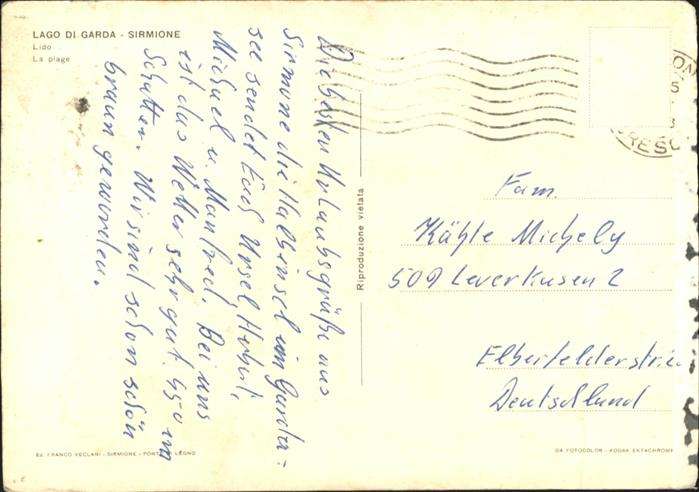 LAGO DI GARDA - SIRMIONE
Lido
La plage
Die besten Urlaubsgrüße aus
Sirmione die Halbinsel im Garda=
see sendet Euch Ursel Herbert,
Michael u. Manfred. Bei uns
ist das Wetter sehr gut. 45° im
Schatten. Wir sind schon schön
braun geworden.
Riproduzione vietata
Fam.
Käthe Michely
509 Leverkusen 2
Elberfelderstr.
Deutschland
Ed. FRANCO VECLANI - SIRMIONE - LEGNO
DA FOTOCOLOR - KODAK EKTACHROME